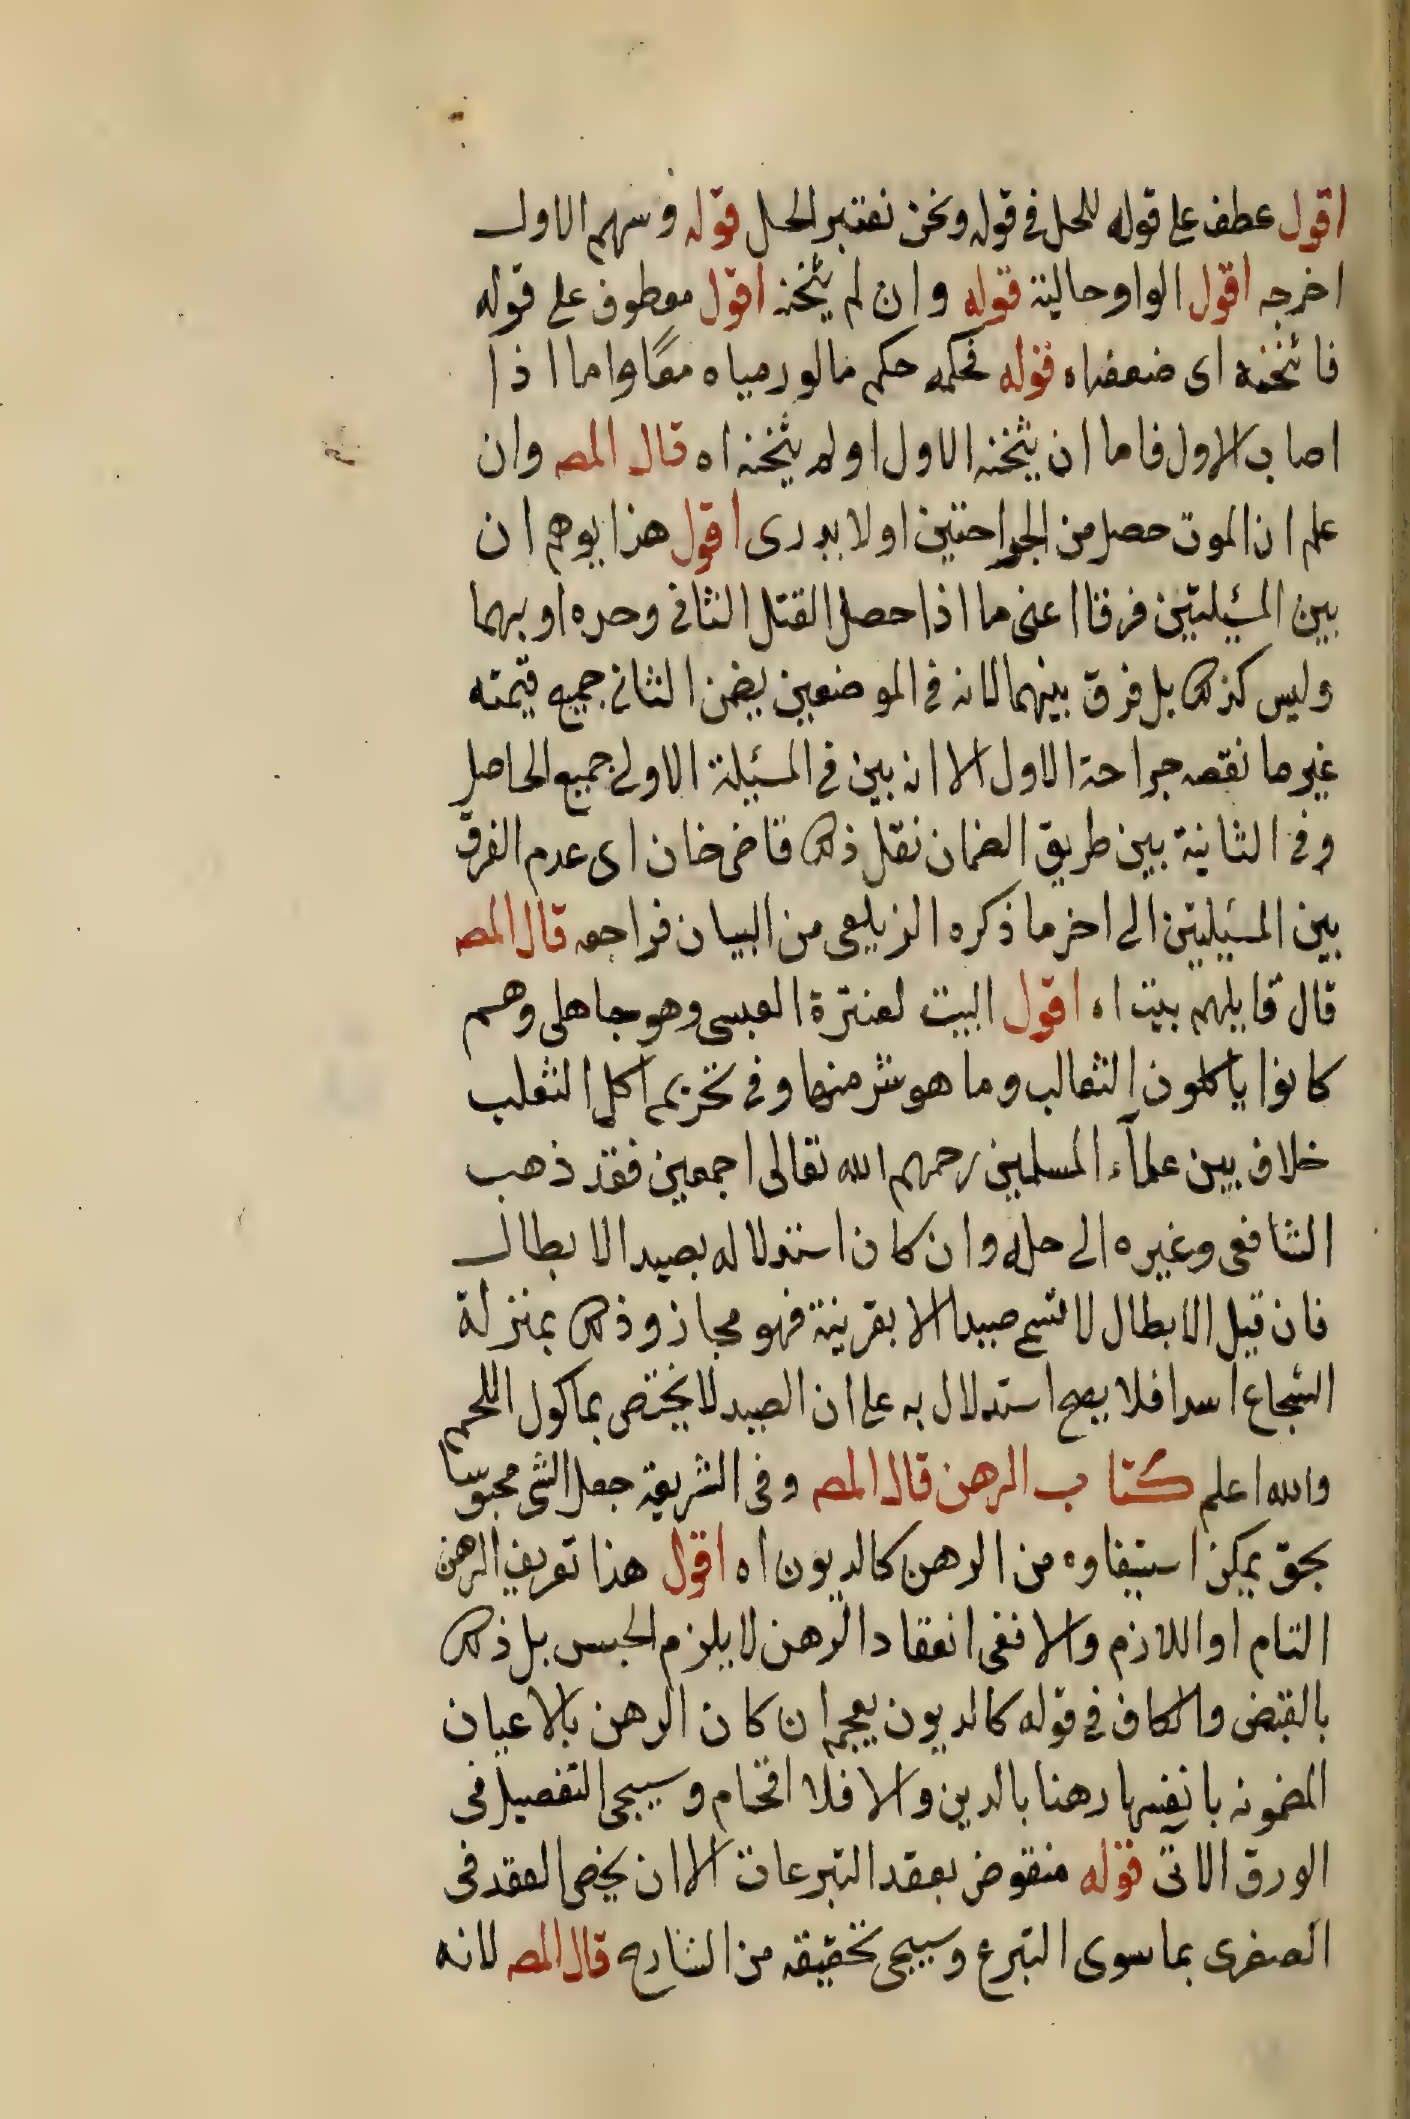 اقول عطف على قوله للحل فى قوله ونحن نعتبر الحل قوله وسهم الاول
اخرجه اقول الواو حالية قوله وان لم يثخنه اقول معطوف على قوله
فاثخنه اى ضعفه اه قوله فحكمه حكم مالو رمياه معًا واما اذا
اصاب الاول فاما ان يثخنه الاول او لم يثخنه اه قال المص وان
علم ان الموت حصل من الجراحتين او لا يدرى اقول هذا يوهم ان
بين المسئلتين فرقا اعنى ما اذا حصل القتل الثانى وحده او بهما
وليس كذلك بل فرق بينهما لانه فى الموضعين يضمن الثانى جميع قيمته
غير ما نقصه جراحة الاول الا انه بين فى المسئلة الاولى جميع الحاصل
وفى الثانية بين طريق الضمان نقل ذلك قاضى خان اى عدم الفرق
بين المسئلتين الى اخر ما ذكره الزيلعى من البيان فراجعه قال المص
قال قايلهم بيت اه اقول البيت لعنترة العبسى وهو جاهلى وهم
كانوا ياكلون الثعالب وما هو شر منها وفى تحريم اكل الثعلب
خلاف بين علمآء المسلمين رحمهم الله تعالى اجمعين فقد ذهب
الشافعى وغيره الى حله وان كان استدلاله بصيد الابطال
فان قيل الابطال لا تسمى صيدا الا بقرينة فهو مجاز وذلك بمنزلة
الشجاع اسدا فلا يصح استدلال به على ان الصيد لا يختص بماكول اللحم
والله اعلم كتاب الرهن قال المص وفى الشريعة جعل الشى محبوسا
بحق يمكن استيفاوه من الرهن كالديون اه اقول هذا تعريف الرهن
التام او اللازم والا ففى انعقاد الرهن لا يلزم الحبس بل ذلك
بالقبض والكاف فى قوله كالديون يعجم ان كان الرهن بالاعيان
المضمونه بانفسها رهنا بالدين والا فلا اقحام وسيجى التفصيل فى
الورق الاتى قوله منقوض بعقد التبرعات الا ان يخص العقد فى
الصغرى بما سوى التبرع وسيجى تحقيقه من الشارح قال المص لانه